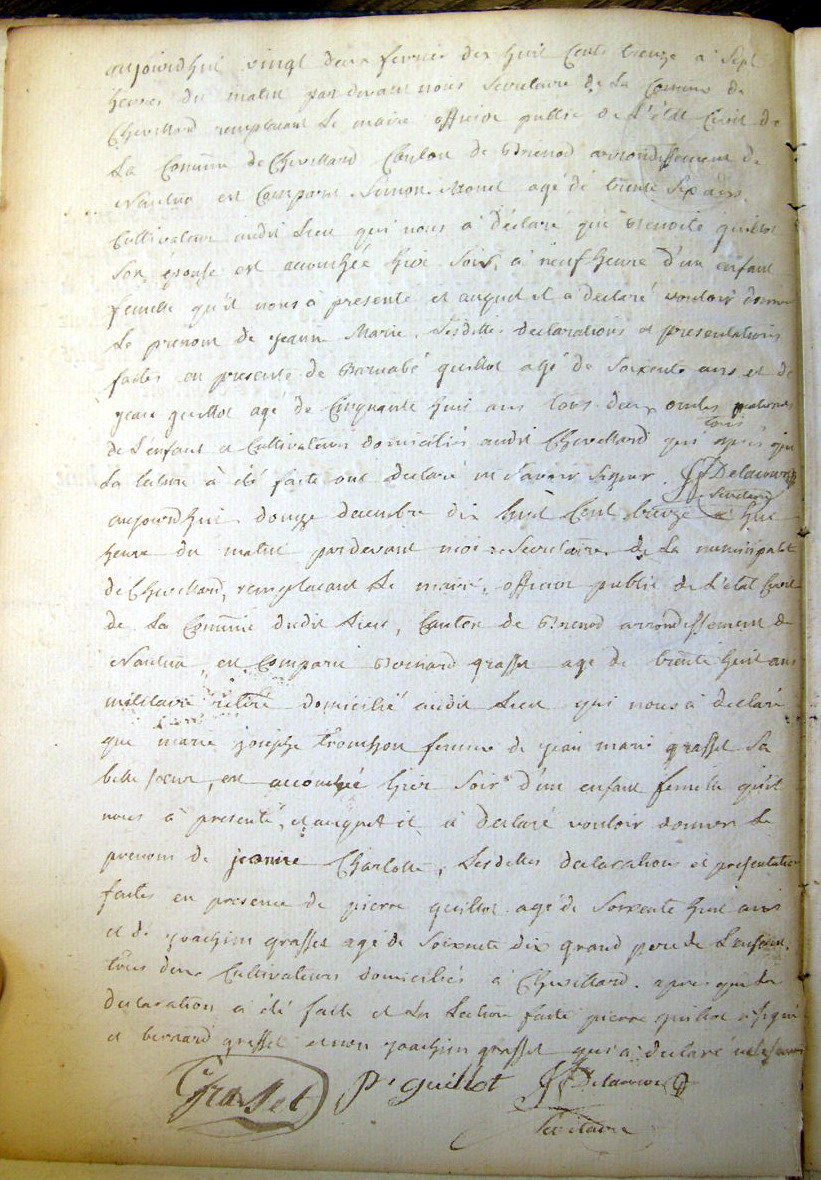 aujourdhui vingt deux fevrier dix huit Cents treize a Sept
heures du matin par devant nous Secretaire de La Comune de
Chevillard remplacant Le maire officier public de L'état Civil de
La Comune de Chevillard Canton de Brenod arrondissement de
Nantua est Comparu Simon Monet agé de trente Six ans
Cultivateur audit Lieu qui nous a déclaré que Benoite guillot
Son épouse est accouchée hier Soir, a neuf heure d'un enfant
femelle qu'il nous a presenté et auquel il a declaré vouloir donner
Le prenom de jeanne Marie. Lesdittes declarations et presentations
faites en presence de Barnabé guillot agé de Soixente ans et de
jean guillot agé de Cinquante huit ans tous deux oncles
de L'enfant et Cultivateurs domiciliés audit Chevillard qui tous après que
La lecture à été faite ont declaré ne Savoir Signer. Delacour
Secretaire
aujourdhui douze decembre dix huit Cent treize a huit
heure du matin pardevant moi Secretaire de La municipalité
de Chevillard, remplacant Le maire, officier public de L'état Civil
de La Comune dudit Lieu, Canton de Brenod arrondissement de
Nantua est Comparu Bernard grasset agé de trente huit ans
militaire retiré domicilié audit Lieu qui nous à declaré
que marie josephe femme de jean marie grasset Sa
belle soeur, est accouchée hier Soir d'un enfant femelle qu'il
nous à presenté, et auquel il à declaré vouloir donner Le
prenom de jeanne Charlotte, Lesdittes declarations et presentation
faites en presence de pierre guillot agé de Soixente huit ans
et de joachim grasset agé de Soixente dix grand pere de L'enfant.
tous deux Cultivateurs domiciliés à Chevillard. après que La
declaration a été faite et La Lecture faite pierre guillot a signé
et bernard grasset et non joachim grasset qui a declaré ne le savoir
Grasset Pe guillot Delacour
Secretaire